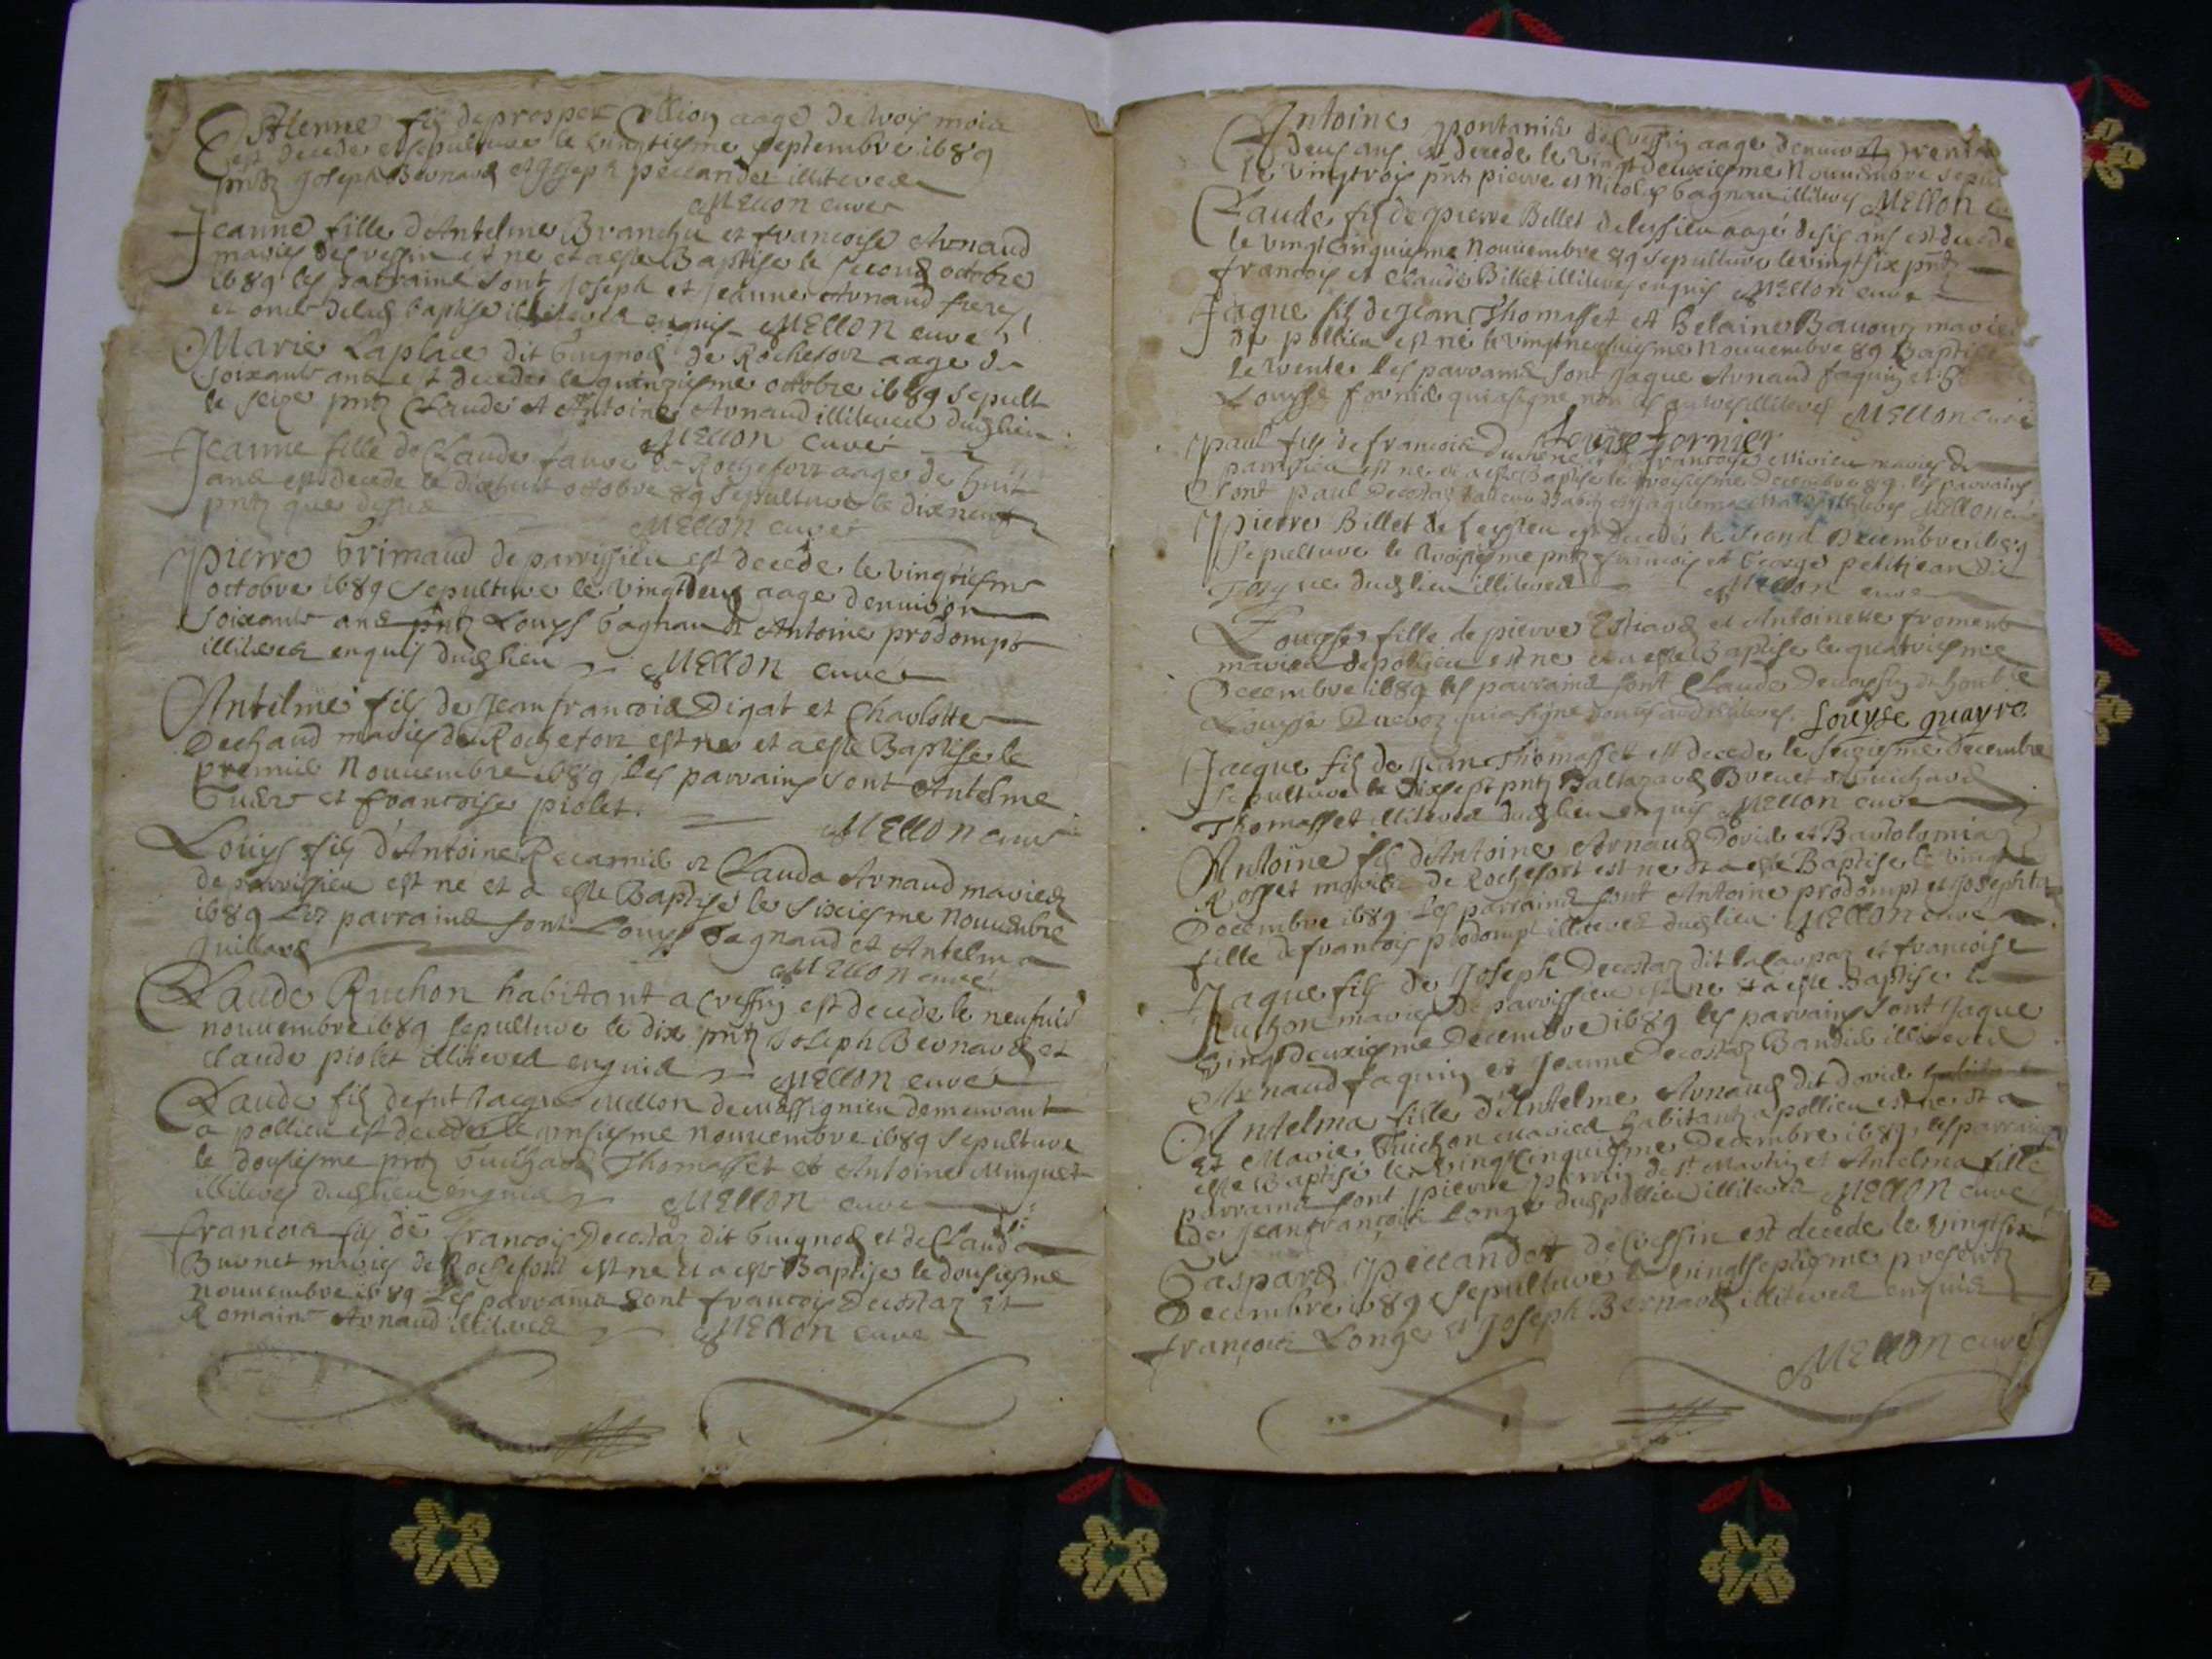 Estienne fils de prosper Million aage de trois mois
est decede et sepulture le vingtiesme septembre 1689
pntz Joseph Bernard et Joseph pellandet illiteres
Mellon curé
Jeanne fille d'Antelme Branchu et francoise Arnaud
maries de cressin est ne et a este Baptise le second octobre
1689 les parrains sont Joseph et Jeanne Arnaud freres
et du baptise illiteres enquis Mellon curé
Marie Laplace dit Guignod de Rochefort aage de
soixante ans est decede le quinziesme octobre 1689 sepult
le seize pntz Claude et Antoine Arnaud illiteres dudlieu
Mellon curé
Jeanne fille de Claude favre de Rochefort aage de huit
ans est decede le dixhuit octobre 89 sepulture le dixneuf
pntz que dessus
Mellon curé
pierre Grimaud de parvissieu est decede le vingtiesme
octobre 1689 sepulture le vingtdeux aage d'environ
soixante ans pntz Louys Gagnaud et Antoine prodompt
illiteres enquis dudlieu Mellon curé
Antelme fils de Jean francois Digat et Charlotte
Dechaud maries de Rochefort est ne et a este Baptise le
premier Nouuembre 1689 les parrains sont Antelme
et francoise piolet.
Mellon curé
Louys fils d'Antoine Recamier et Clauda Arnaud maries
de parvissieu est ne et a este Baptise le sixiesme Nouembre
1689 Les parrains sont Louys Gagnaud et Antelma
Juilland
Mellon curé
Claude Ruchon habitant a Cressin est decede le neufuie
nouuembre 1689 sepulture le dix pntz Joseph Bernard et
claude piolet illiteres enquis Mellon curé
Claude fils de fut Jacque Mellon de demeurant
a pollieu est decede le onsiesme nouuembre 1689 sepulture
le dousiesme pntz Guichard Thomasset et Antoine Minguet
illiteres dudlieu enquis Mellon curé
francois fils de francois Decostaz dit Guignod et de Clauda
Burnet maries de Rochefort est ne et a este Baptise le dousiesme
nouuembre 1689 Les parrains sont francois Decostaz et
Romaine Arnaud illiteres Mellon curé
Antoine pontanier de Cressin aage d'environ trente
deux ans est decede le vingtdeuxiesme Nouuembre sepul
le vingtrois pntz pierre et Nicolas Gagnau illiteres Mellon c
Claude fils de pierre Billet de leyssieu aagé de six ans est decede
le vingtcinquiesme Nouuembre 89 sepulture le vingtsix pntz
francois et Claude Billet illiteres enquis Mellon curé
Jaque fils de Jean Thomasset et Helaine Bauouz maries
de pollieu est né le vingtneufuiesme Nouuembre 89 Baptise
le trente les parrains sont Jaque Arnaud faquin et
Louyse fornier qui a signé non les autres illiteres Mellon curé
Louise fornier
paul fils de francois et de francoise maries de
est ne et a este Baptise le troisiesme Decembre 89 les parrains
sont paul Decostaz illiteres Mellon cu
pierre Billet de Leyssieu est decedé le second Decembre 1689
sepulture le troisiesme pntz francois et George petitjean dit
dudlieu illiteres Mellon curé
Louyse fille de pierre Estrard et Antoinette froment
maries de pollieu est ne et a este Baptise le quatriesme
Decembre 1689 les parrains sont Claude de
Louyse qui a signe Louyse guayra
Jacque fils de Jean Thomasset est decede le seiziesme Decembre
sepulture le Dixsept pntz Baltazard Brevet et Guichard
Thomasset illiteres dudlieu enquis Mellon curé
Antoine fils d'Antoine Arnaud Dorie et Bartolomia
Rosset maries de Rochefort est ne et a este Baptise le vingt
Decembre 1689 Les parrains sont Antoine prodompt et Joseph
fille de francois prodompt illiteres dudlieu Mellon curé
Jaque fils de Joseph Decostaz dit et francoise
Ruchon maries de parvissieu est ne et a este Baptise le
vingtdeuxiesme Decembre 1689 les parrains sont Jaque
Arnaud faquin et Jeanne Decostaz Bandie illiteres
Antelma fille d'Antelme Arnaud dit Dorie
et Marie Guichon maries habitantz a pollieu est ne et a
este Baptise le vingtcinquiesme Decembre 1689, les parrains
parrains sont pierre pernin de st Martin et Antelma fille
de Jean francois Longe dud pollieu illiteres Mellon curé
Gaspard pellandet de Cressin est decede le vingtsix
Decembre 1689 sepulture le vingtseptiesme presentz
francois Longe et Joseph Bernard illiteres enquis
Mellon curé